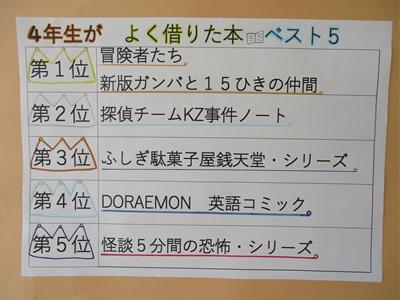 4年生が よく借りた本 ベスト5
第1位
冒険者たち
新版ガンバと15ひきの仲間
第2位 探偵チームKZ事件ノート
第3位 ふしぎ駄菓子屋銭天堂・シリーズ
第4位 DORAEMON 英語コミック
第5位 怪談5分間の恐怖・シリーズ